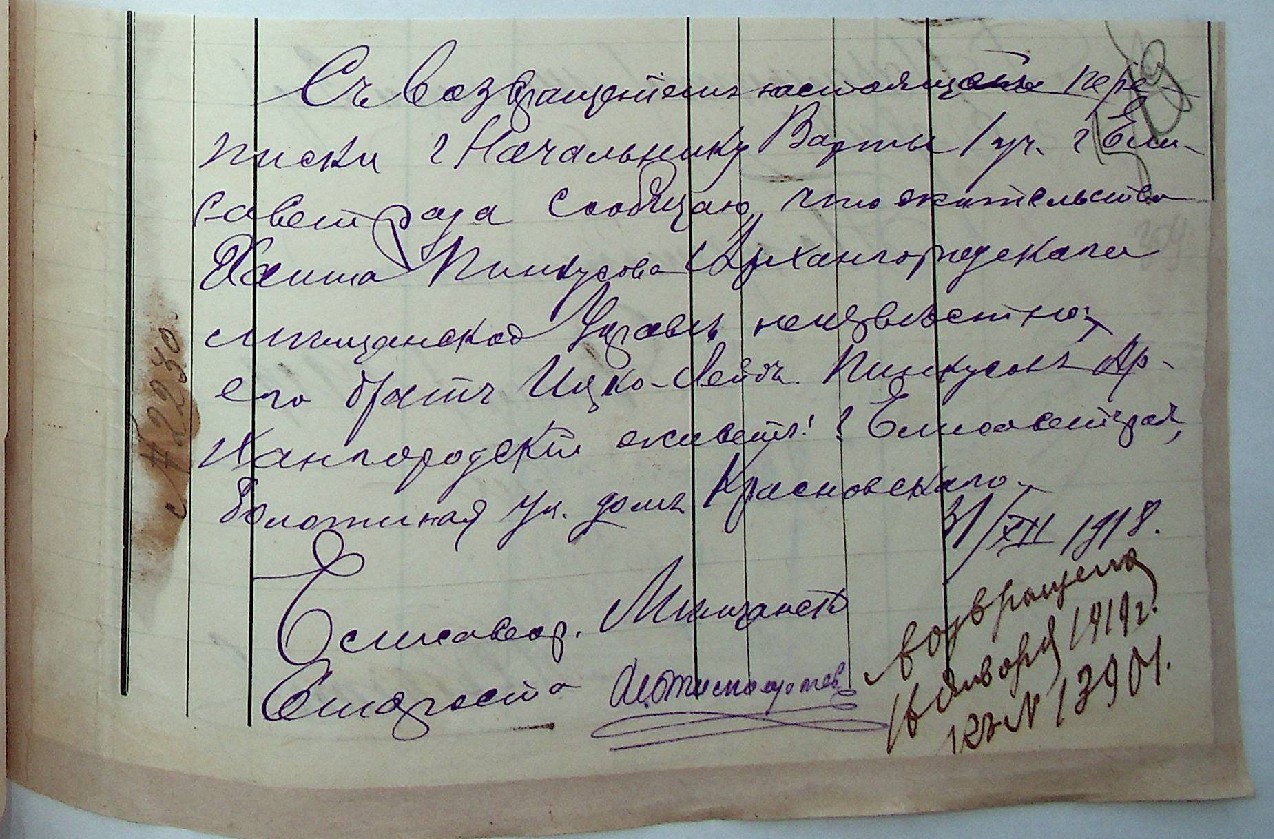 Съ возвращеніемъ настоящей пере-
писки г Начальнику Варты 1 уч. г Ели-
саветграда сообщаю, что жительство
Хаима Пинкусова Архангородскаго
мѣщанской Управѣ неизвѣстно,
его братъ Ицко-Лейбъ Пинкусовъ Ар-
хангородскій живетъ: г Елисаветград,
Болотиная ул. домъ Красновскаго.
31/XII 1918.
Елисаветр. Мѣщанскій
Староста
возвращена
16 Января 1919 г.
къ № 13901.
№ 2230.